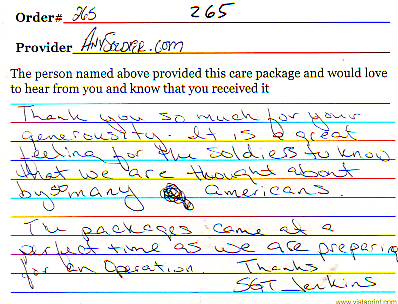 Order# 265 265
Provider AnySoldier.com
The person named above provided this care package and would love
to hear from you and know that you received it
Thank you so much for your
generousity. It is a great
feeling for the soldiers to know
that we are thought about
by so many americans.
The packages came at a
perfect time as we are preparing
for an Operation. Thanks
SGT Jenkins
www.vistaprint.com